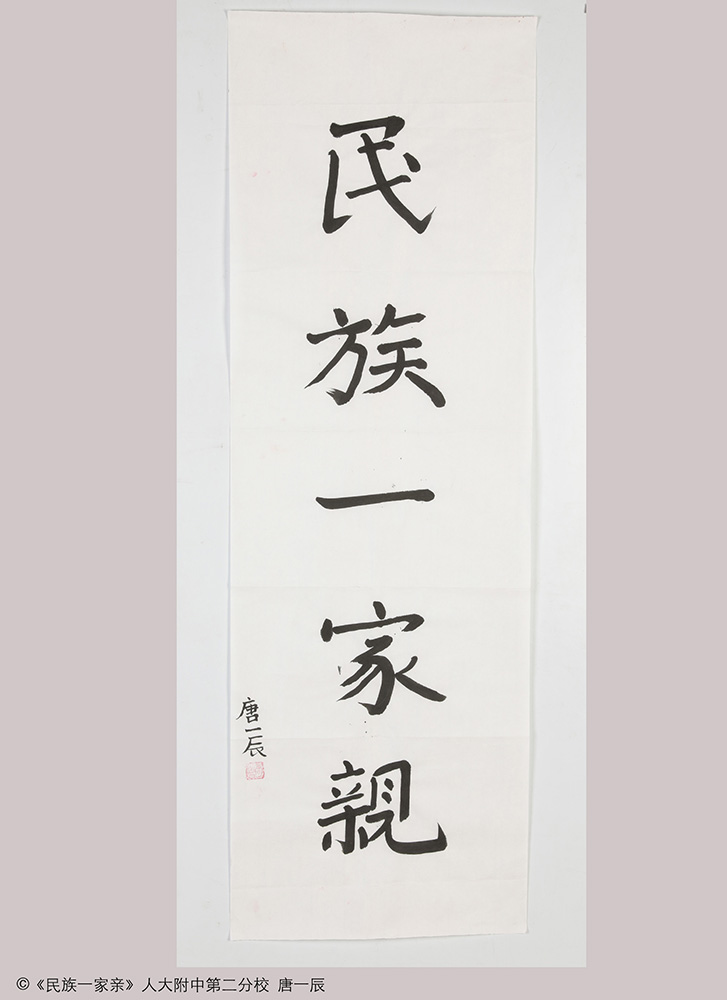 民族一家親
唐一辰
©《民族一家亲》人大附中第二分校 唐一辰